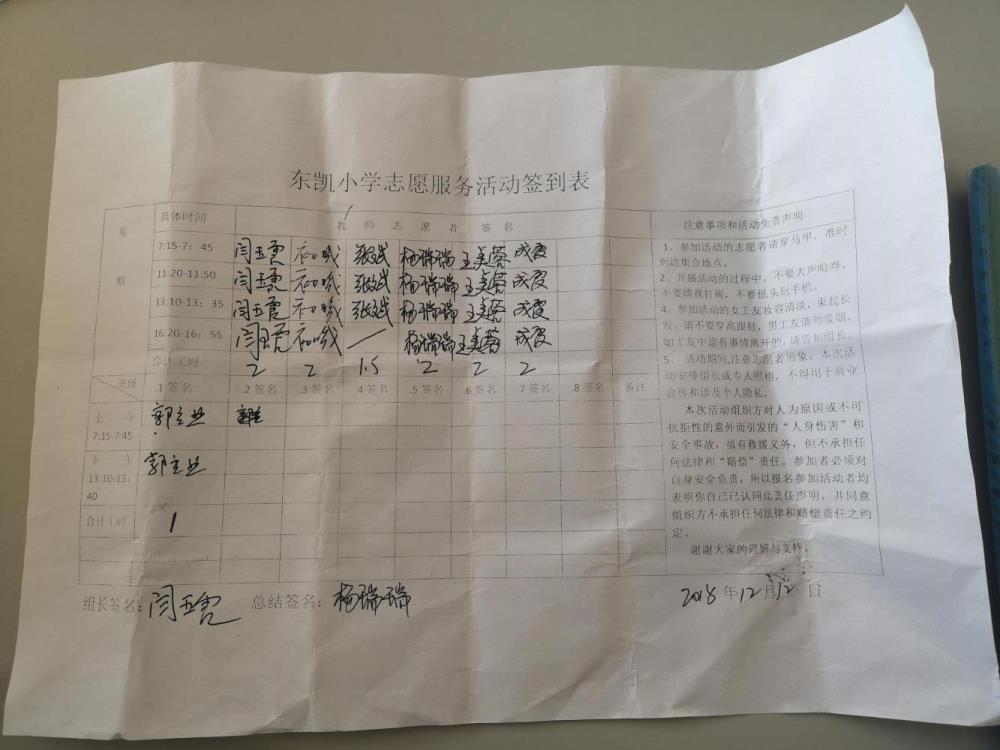 东凯小学志愿服务活动签到表
星期
具体时间 教师志愿者签名 注意事项和活动免责声明
7:15-7：45 闫玉霞 张斌 杨瑞瑞 王美蓉 成霞
11:20-11:50 闫玉霞 张斌 杨瑞瑞 王美蓉 成霞
13:10-13：35 闫玉霞 张斌 杨瑞瑞 王美蓉 成霞
16:20-16：55 闫玉霞 — 杨瑞瑞 王美蓉 成霞
合计工时 2 2 1.5 2 2 2
班级 .1签名 .2签名 .3签名 .4签名 .5签名 .6签名 7签名 .8签名 备注
上午
7:15-7:45 郭立业
下午
13:10-13：
40 郭立业
合计工时 1
1、参加活动的志愿者请穿马甲，准时
到达集合地点。
2、开展活动的过程中，不要大声喧哗，
不要嬉戏打闹，不要低头玩手机。
4、参加活动的女工友妆容清淡，束起长
发，请不要穿高跟鞋，男工友请勿吸烟。
如工友中途有事情离开的，请告知组长。
5、活动期间,注意志愿者形象，本次活
动安排组长或专人照相，不得用于商业
宣传和涉及个人隐私。
本次活动组织方对人为原因或不可
抗拒性的意外而引发的“人身伤害”和
安全事故，虽有救援义务，但不承担任
何法律和“赔偿”责任。参加者必须对
自身安全负责，所以报名参加活动者均
表明你自己已认同此责任声明，并同意
组织方不承担任何法律和赔偿责任之约
定。
谢谢大家的理解与支持。
组长签名：闫玉霞 总结签名：杨瑞瑞 2018年12月12日